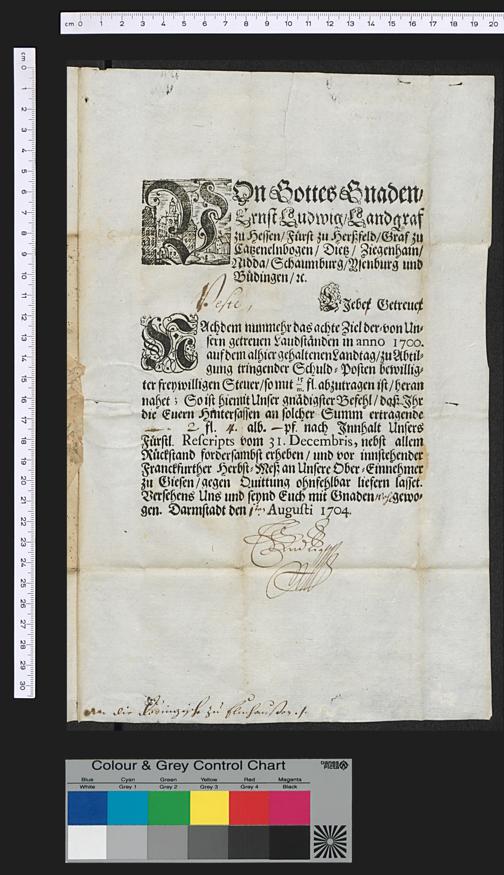 VOn Gottes Gnaden/
Ernst Ludwig/Landgraf
zu Hessen/Fürst zu Herßfeld/Graf zu
Catzenelnbogen/ Dietz/ Ziegenhain/
Nidda/Schaumburg/Ysenburg und
Büdingen/ ꝛc.
LIeber Getreuer
NAchdem nunmehr das achte Ziel der von Un-
sern getreuen Landständen in anno 1700.
auf dem alhier gehaltenen Landtag/zu Abtil-
gung tringender Schuld-Posten bewillig-
ter freywilligen Steuer/so mit 15/m. fl. abzutragen ist/heran
nahet; So ist hiemit Unser gnädigster Befehl/ daß Ihr
die Euern Hintersassen an solcher Summ ertragende
— 2 fl. 4. alb. — pf. nach Innhalt Unsers
Fürstl. Rescripts vom 31. Decembris, nebst allem
Rückstand fordersambst erheben/ und vor instehender
Franckfurther Herbst-Meß an Unsere Ober-Einnehmer
zu Giesen/gegen Quittung ohnfehlbar liefern lasset.
Versehens Uns und seynd Euch mit Gnaden gewo-
gen. Darmstadt den 1ten Augusti 1704.
Ernst Ludwig
cm 0 1 2 3 4 5 6 7 8 9 10 11 12 13 14 15 16 17 18 19 20
cm 0 1 2 3 4 5 6 7 8 9 10 11 12 13 14 15 16 17 18 19 20 21 22 23 24 25 26 27 28 29 30
Colour & Grey Control Chart
Blue Cyan Green Yellow Red Magenta
White Grey 1 Grey 2 Grey 3 Grey 4 Black